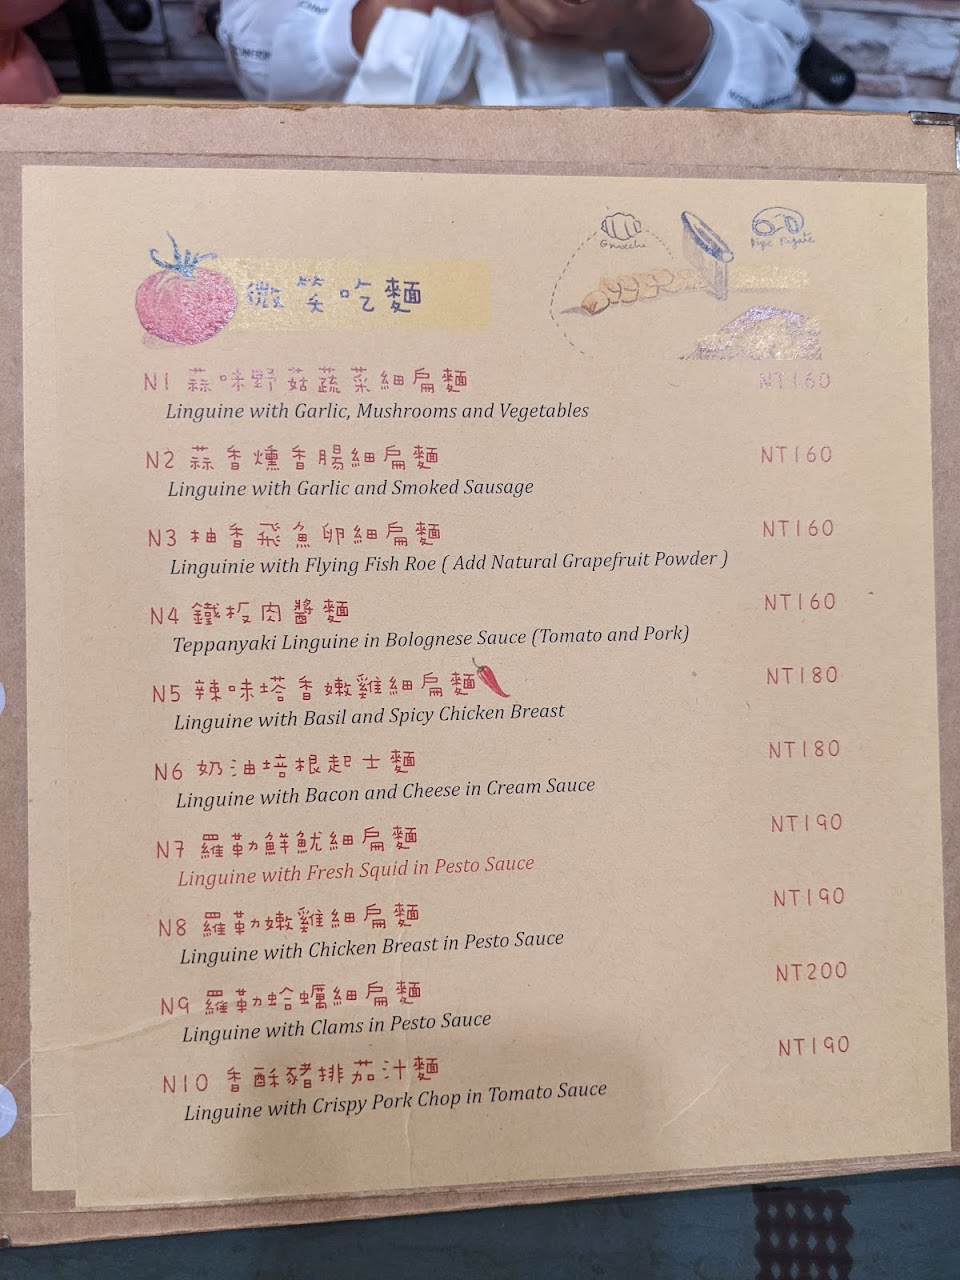 Gnocchi
Pipe Rigate
微笑吃麵
N1 蒜味野菇蔬菜細扁麵 NT160
Linguine with Garlic, Mushrooms and Vegetables
N2 蒜香燻香腸細扁麵 NT160
Linguine with Garlic and Smoked Sausage
N3 柚香飛魚卵細扁麵 NT160
Linguinie with Flying Fish Roe ( Add Natural Grapefruit Powder )
N4 鐵板肉醬麵 NT160
Teppanyaki Linguine in Bolognese Sauce (Tomato and Pork)
N5 辣味塔香嫩雞細扁麵 NT180
Linguine with Basil and Spicy Chicken Breast
N6 奶油培根起士麵 NT180
Linguine with Bacon and Cheese in Cream Sauce
N7 羅勒鮮魷細扁麵 NT190
Linguine with Fresh Squid in Pesto Sauce
N8 羅勒嫩雞細扁麵 NT190
Linguine with Chicken Breast in Pesto Sauce
N9 羅勒蛤蠣細扁麵 NT200
Linguine with Clams in Pesto Sauce
N10 香酥豬排茄汁麵 NT190
Linguine with Crispy Pork Chop in Tomato Sauce